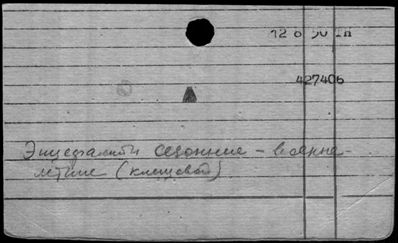 427406
Энцефалиты сезонные – весенне-
летние (клещевой)